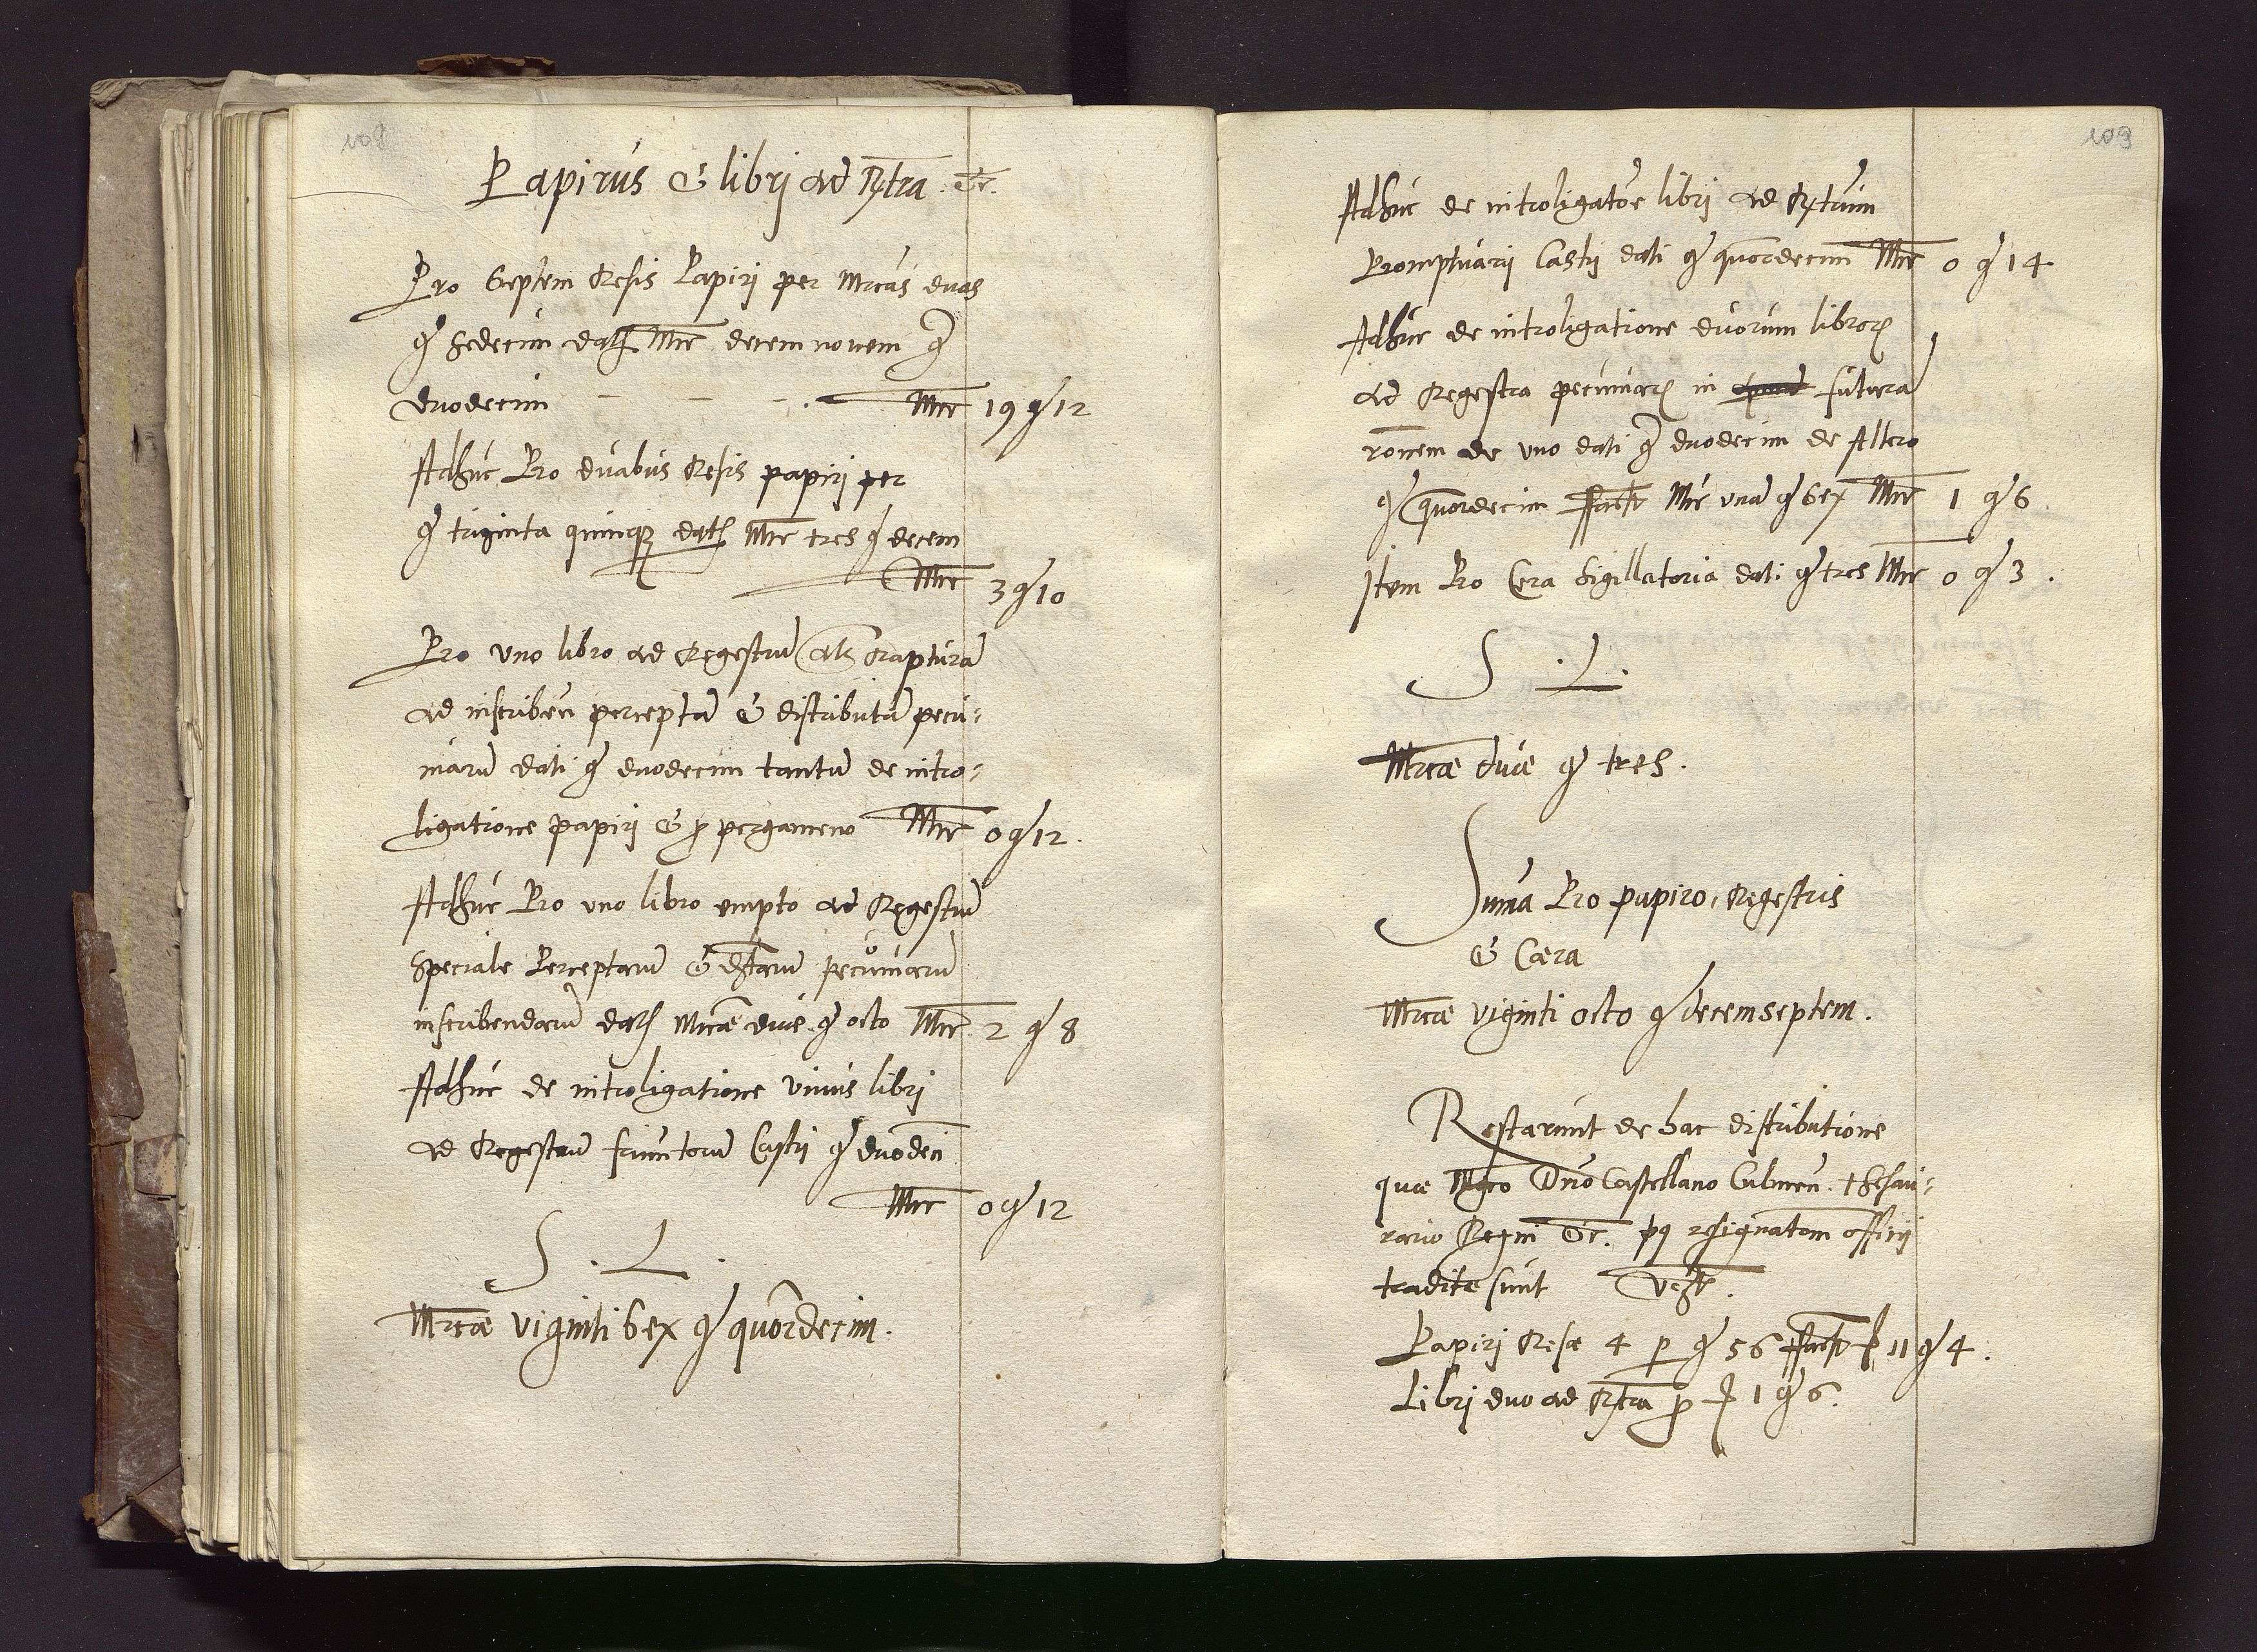 108
Papirus & libri ad Rtra etc.
Pro Septem Resis Papiri per Mrcas duas
g Sedecim dati Mrc decem novem g
duodecim — — — . Mrc 19 g 12
Adhuc Pro duabus Resis papiri per
g triginta quinq dati Mrc tres g decem
Mrc 3 g 10
Pro uno libro ad Regestru als Rapturā
ad inscriben perceptā & distributā pecu-
niarū dati g duodecim tantū de intro-
ligatione papiri & p pergameno Mrc 0 g 12.
Adhuc Pro uno libro empto ad Regestrū
Speciale Perceptarū & dtarū pecuniarū
inscribendarū dati Mrcae duae g octo Mrc 2 g 8
Adhuc de introligatione unius libri
ad Regestrū frumtorū Castri g duodeci
Mrc 0 g 12
S . L .
Mrcae viginti Sex g quordecim.
109
Adhuc de introligatōe libri ad Rtrum
Promptuarii Castri dati g quordecim Mrc 0 g 14
Adhuc de introligatione duorum libror
ad Regestra pecuniar in futurā
ronem de uno dati g duodecim de Altero
g quordecim facit Mrc unā g Sex Mrc 1 g 6.
Item Pro Cera Sigillatoria dati g tres Mrc 0 g 3.
S . L .
Mrcae duae g tres.
Suma Pro papiro, Regestris
& Caera
Mrcae viginti octo g decemseptem.
Restarunt de hac distributione
quae Mgco Dno Castellano Culmeñ. thesau-
rario Regni etc. p9 resignatom officii
tradita sunt
Papiri Resae 4 p g 56 facit 11 g 4.
Libri duo ad Rtra p 1 g 6.